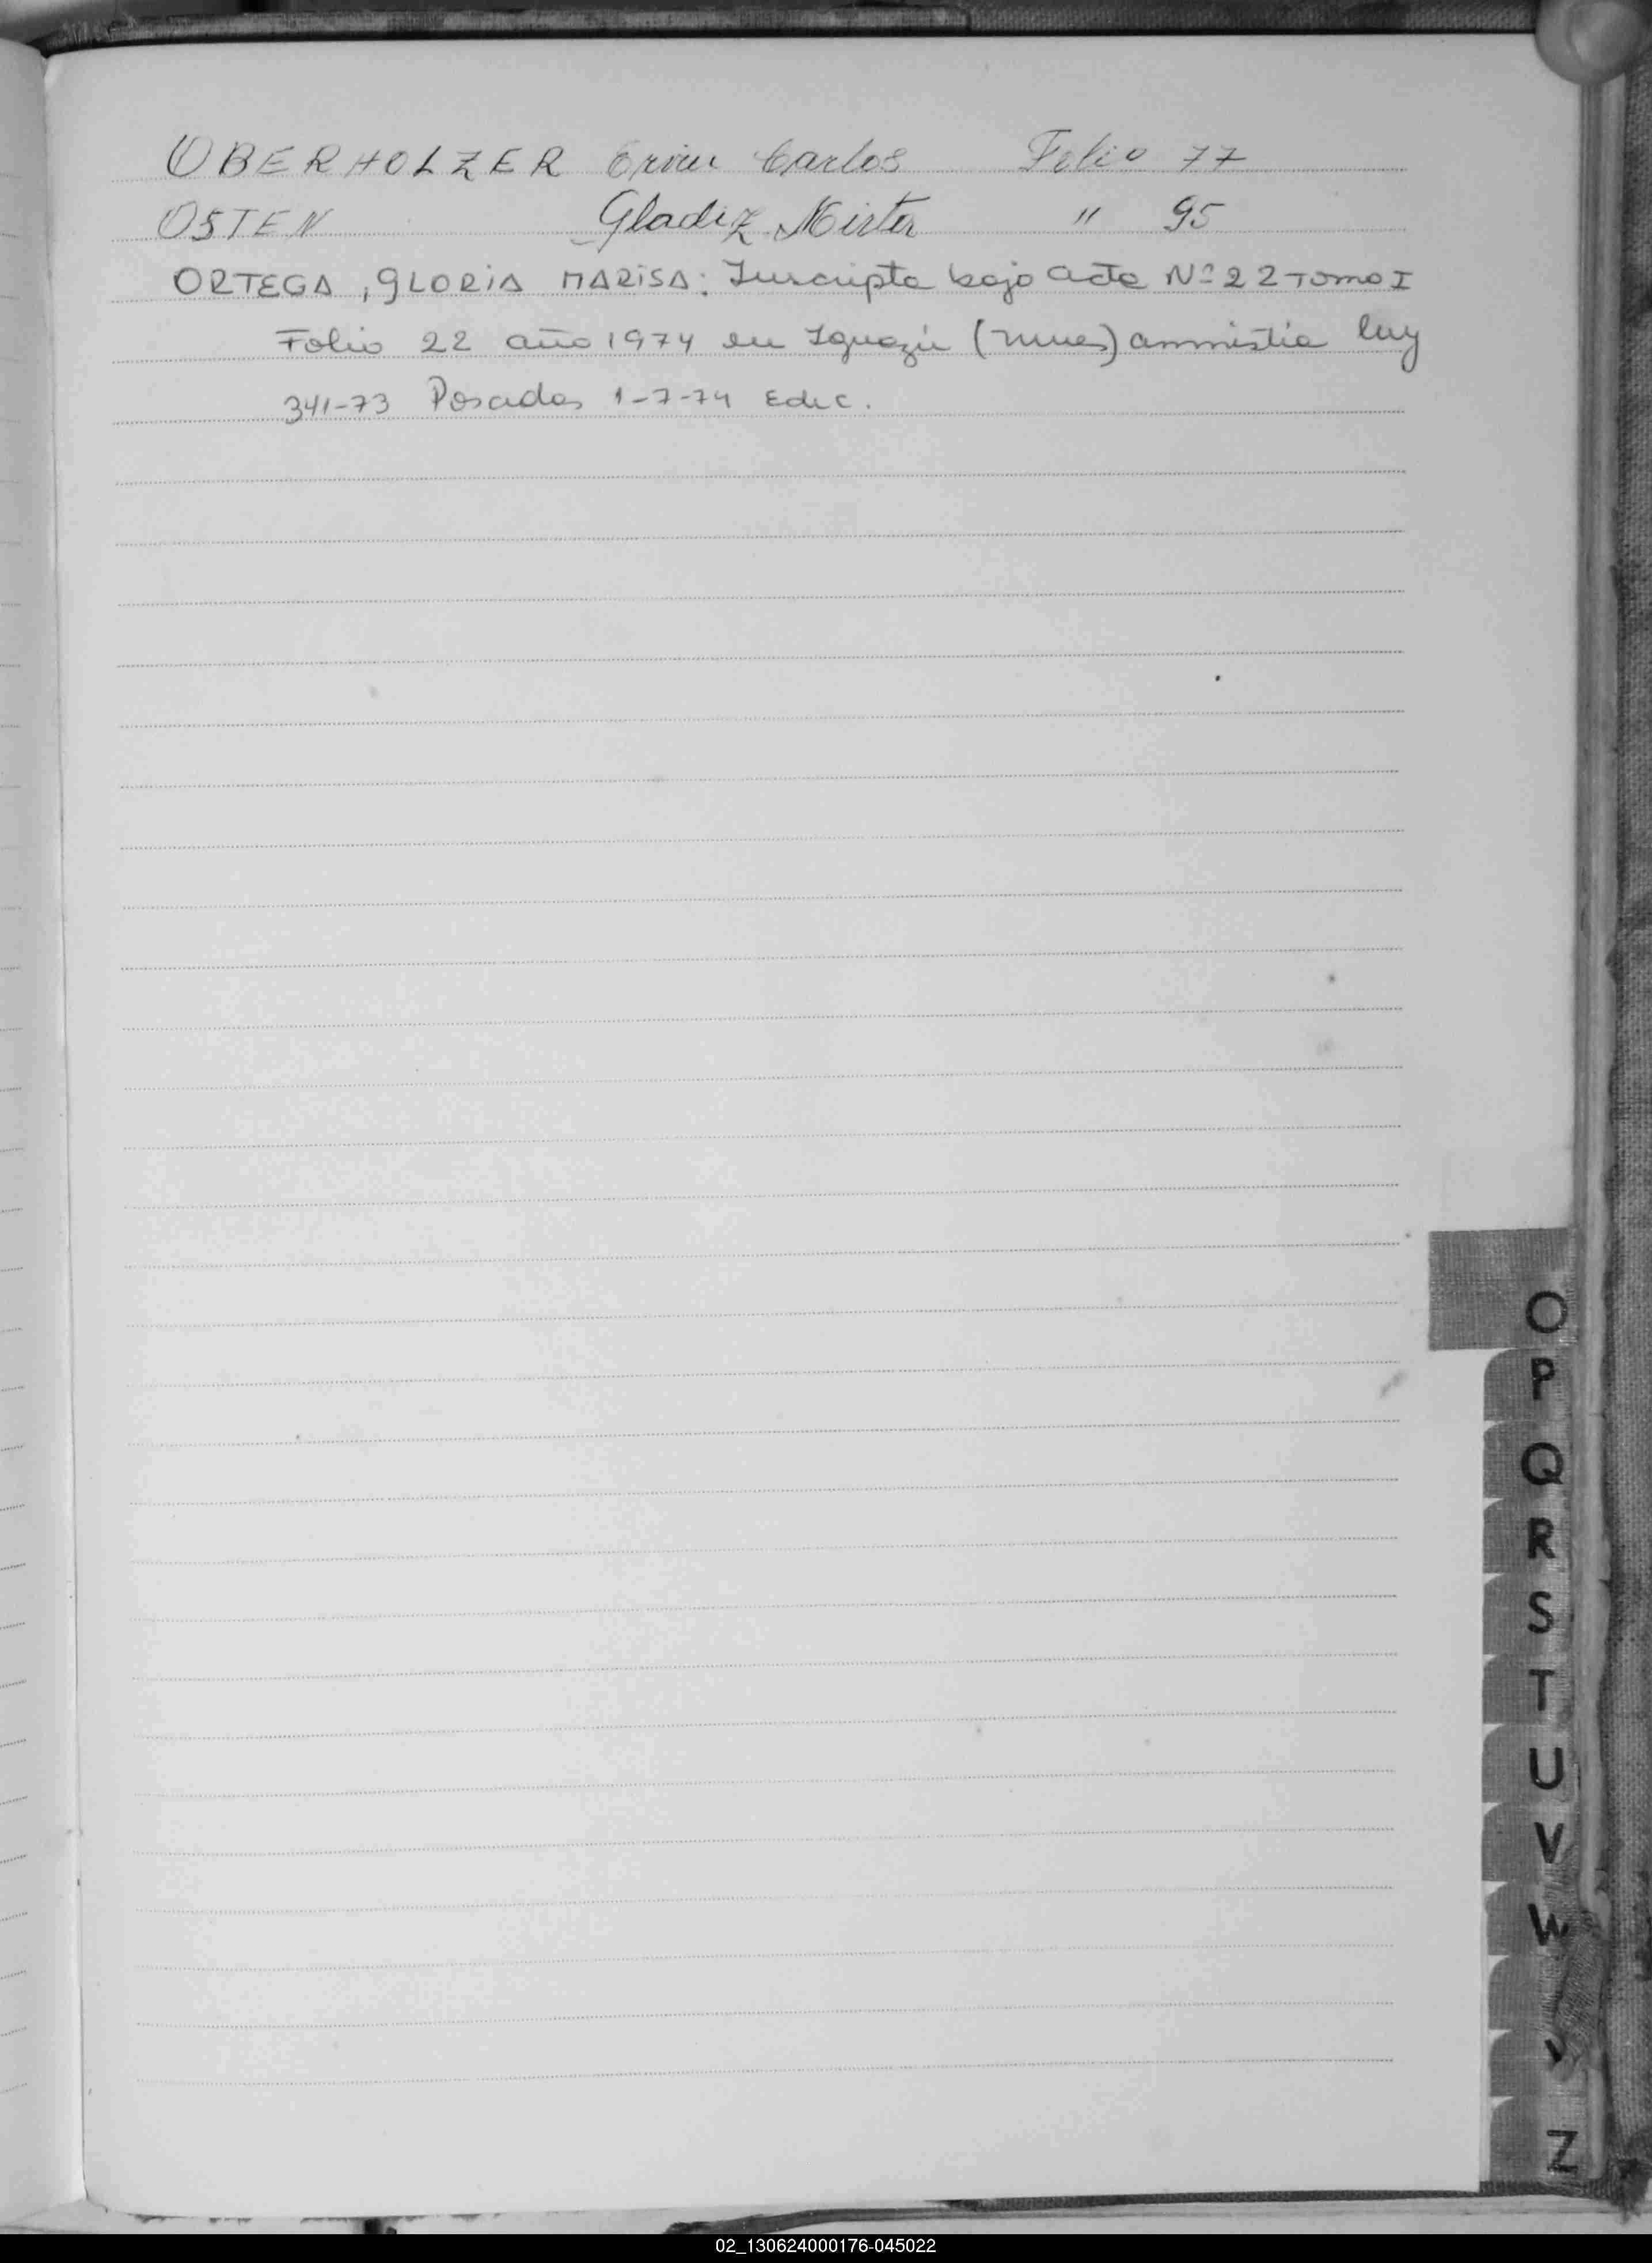 OBERHOLZER Erwin Carlos Folio 77
OSTEN Gladiz Mirta " 95
ORTEGA, GLORIA MARISA: Inscripta bajo acta Nº 22 Tomo I
Folio 22 año 1974 en Iguazú (mnes) amnistia ley
341-73 Posadas 1-7-74 Edic.
O
P
Q
R
S
T
U
V
W
Z
02_130624000176-045022